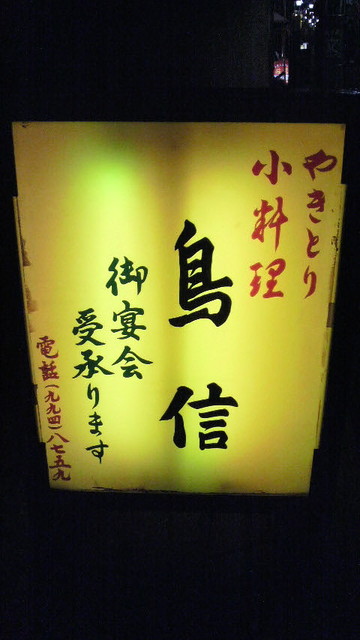 やきとり
小料理
鳥信
御宴会
受承ります
電話(九九四)八七五九